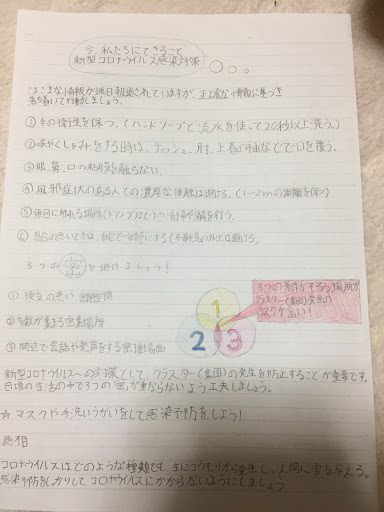 今、私たちにできること
新型コロナウイルス感染対策
さまざまな情報が毎日報道されていますが、正確な情報に基づき
落ち着いて行動しましょう。
①手の衛生を保つ。(ハンドソープと流水を使って20秒以上洗う。)
②咳やくしゃみをする時は、ティッシュ、肘、上着の袖などで口を覆う。
③眼、鼻、口の粘膜を触らない。
④風邪症状のある人との濃厚な接触は避ける。(1~2mの距離を保つ)
⑤毎日に触れる場所(ドアノブなど)の清掃や消毒を行う。
⑥具合の悪いときは、自宅で安静にする(不要不急の外出は避ける。
3つの密を避けましょう!
①換気の悪い密閉空間
②多数が集まる密集場所
③間近で会話や発声をする密接場面
3つの条件がそろう場所が
クラスター(集団)発生の
リスクが高い!
1
2
3
新型コロナウイルスへの対策として、クラスター(集団)の発生を防止することが重要です。
日頃の生活の中で3つの「密」が重ならないよう工夫しましょう。
☆マスクや手洗いうがいをして感染予防をしよう!
感想
コロナウイルスはどのような種類でも、主にコウモリから発生し、人間に害を与える。
感染予防をしっかりして、コロナウイルスにかからないようにしましょう